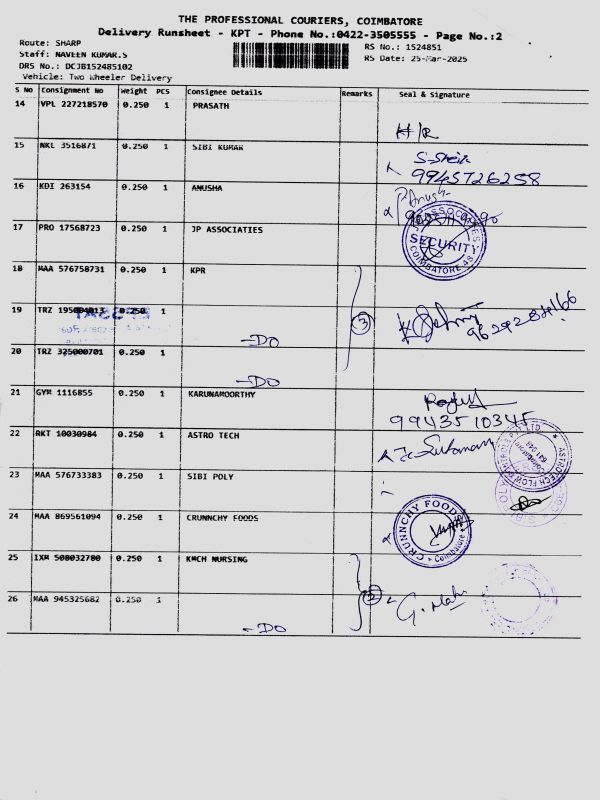 THE PROFESSIONAL COURIERS, COIMBATORE
Delivery Runsheet - KPT - Phone No.:0422-3505555 - Page No.:2
Route: SHARP
RS No.: 1524851
Staff: NAVEEN KUMAR.S
RS Date: 25-Mar-2025
DRS No.: DCJB152485102
Vehicle: Two Wheeler Delivery
S No Consignment No Weight PCS Consignee Details Remarks Seal & Signature
14 VPL 227218570 0.250 1 PRASATH
H/R
15 NKL 3516871 0.250 1 SIBI KUMAR
9945726258
16 KDI 263154 0.250 1 ANUSHA
17 PRO 17568723 0.250 1 JP ASSOCIATIES
JP ASSOCIATES
SECURITY
COIMBATORE-48
18 MAA 576758731 0.250 1 KPR
19 TRZ 195004013 0.250 1
-DO
3
9629284166
20 TRZ 325000701 0.250 1
-DO
21 GYM 1116855 0.250 1 KARUNAMOORTHY
9943510345
22 RKT 10030984 0.250 1 ASTRO TECH
23 MAA 576733383 0.250 1 SIBI POLY
24 MAA 869561094 0.250 1 CRUNNCHY FOODS
CRUNNCHY FOODS
Coimbatore
25 IXM 508032780 0.250 1 KMCH NURSING
2
26 MAA 945325682 0.250 1
-DO